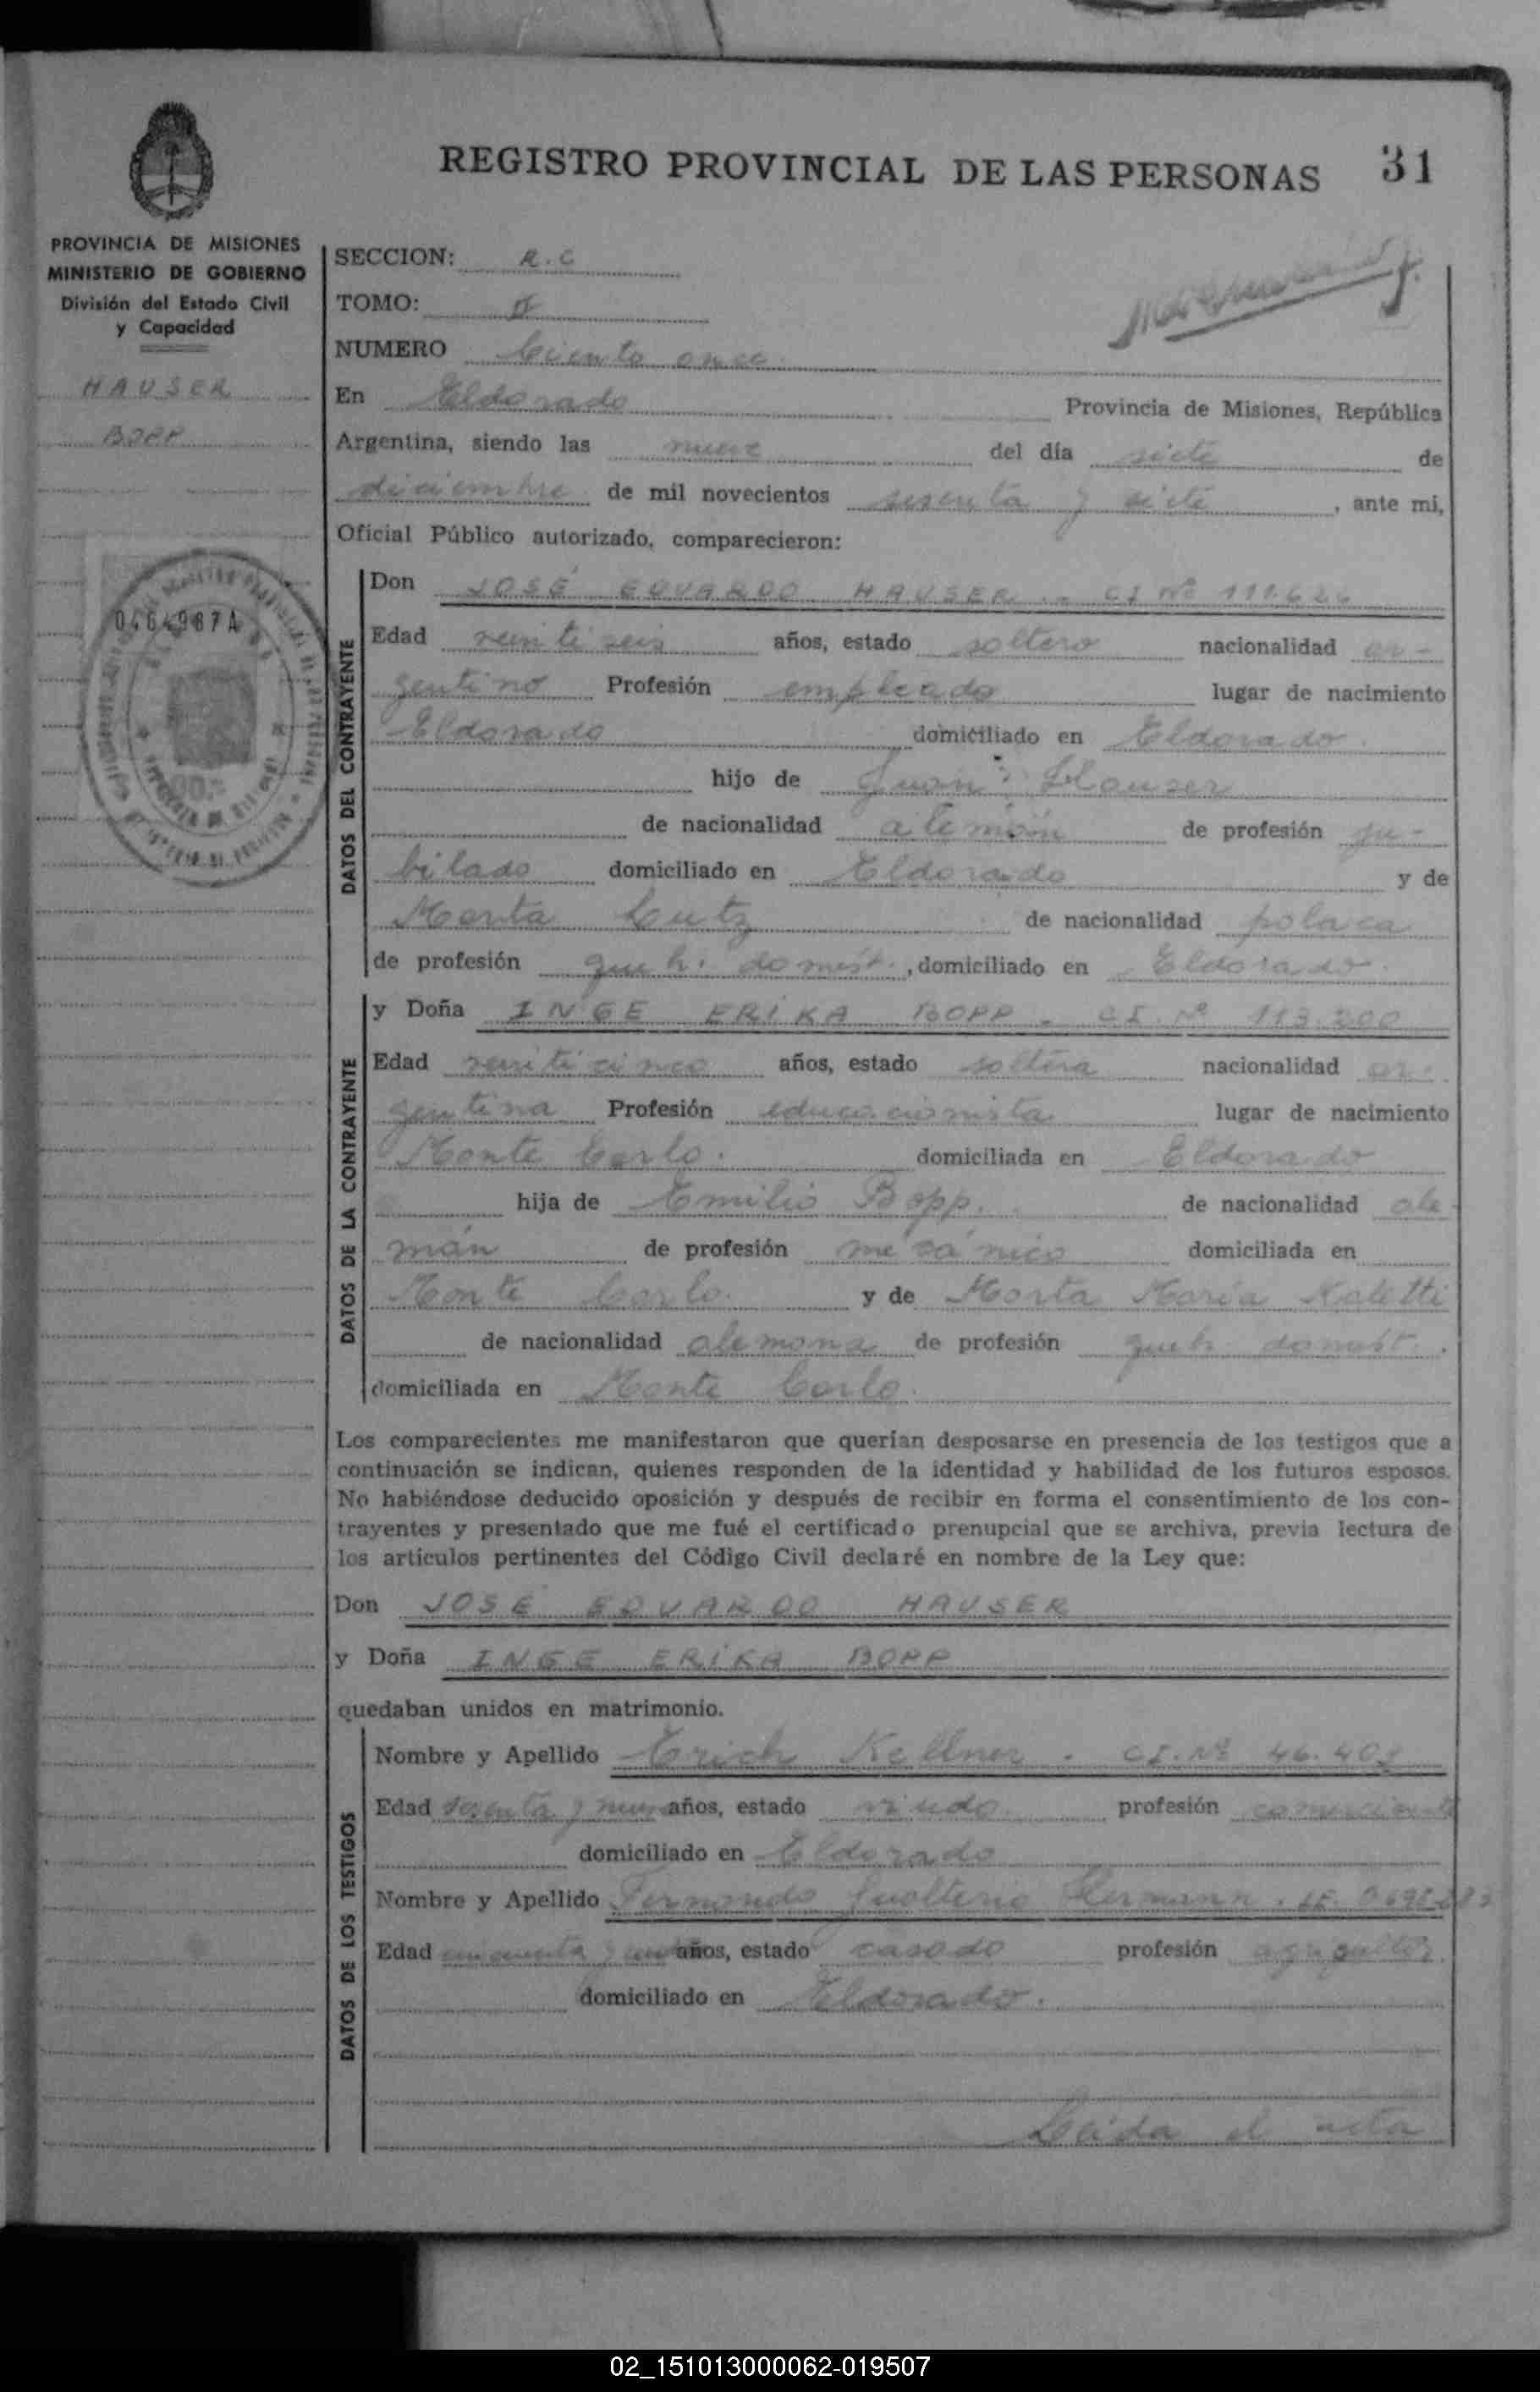 REGISTRO PROVINCIAL DE LAS PERSONAS 31
PROVINCIA DE MISIONES
MINISTERIO DE GOBIERNO
División del Estado Civil
y Capacidad
HAUSER
BOPP
04649674
SECCION: R.C
TOMO:
NUMERO Ciento once.
En Eldorado Provincia de Misiones, República
Argentina, siendo las nueve del día siete de
diciembre de mil novecientos sesenta y siete, ante mi,
Oficial Público autorizado, comparecieron:
DATOS DEL CONTRAYENTE
Don JOSÉ EDUARDO HAUSER.- CI Nº
Edad veintiseis años, estado soltero nacionalidad ar-
gentino Profesión empleado lugar de nacimiento
Eldorado domiciliado en Eldorado.
hijo de Juan Hauser
de nacionalidad alemán de profesión ju-
bilado domiciliado en Eldorado y de
Marta Lutz de nacionalidad polaca
de profesión queh. domést., domiciliado en Eldorado.
DATOS DE LA CONTRAYENTE
y Doña INGE ERIKA BOPP - CI. Nº 113.200
Edad veinticinco años, estado soltera nacionalidad ar-
gentina Profesión educacionista lugar de nacimiento
Monte Carlo. domiciliada en Eldorado
hija de Emilio Bopp. de nacionalidad ale-
mán de profesión mecánico domiciliada en
Monte Carlo y de Marta María Kaletti
de nacionalidad alemana de profesión queh. domést.
domiciliada en Monte Carlo.
Los comparecientes me manifestaron que querían desposarse en presencia de los testigos que a
continuación se indican, quienes responden de la identidad y habilidad de los futuros esposos.
No habiéndose deducido oposición y después de recibir en forma el consentimiento de los con-
trayentes y presentado que me fué el certificado prenupcial que se archiva, previa lectura de
los artículos pertinentes del Código Civil declaré en nombre de la Ley que:
Don JOSÉ EDUARDO HAUSER
y Doña INGE ERIKA BOPP
quedaban unidos en matrimonio.
DATOS DE LOS TESTIGOS
Nombre y Apellido Erich Kellner - CI. Nº
Edad años, estado viudo profesión comerciante
domiciliado en Eldorado
Nombre y Apellido Fernando Gualterio Hermann.
Edad años, estado casado profesión agricultor.
domiciliado en Eldorado.
Leida el acta
02_151013000062-019507